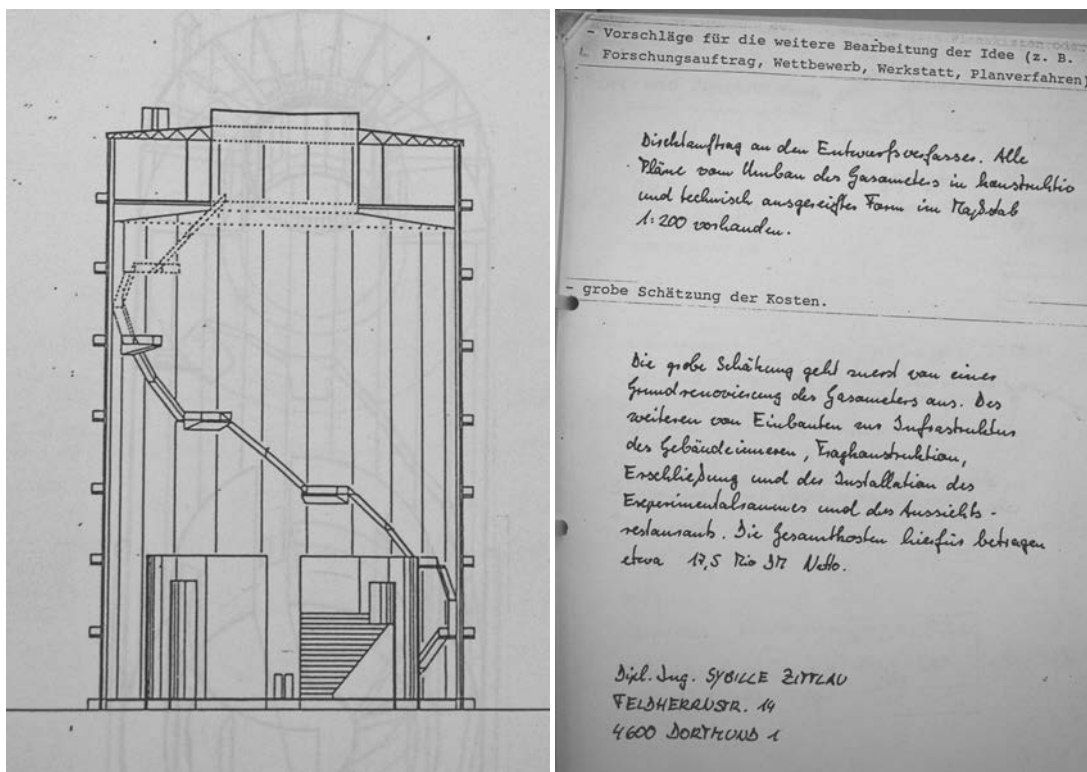 - Vorschläge für die weitere Bearbeitung der Idee (z. B.
Forschungsauftrag, Wettbewerb, Werkstatt, Planverfahren)
Direktauftrag an den Entwurfsverfasser. Alle
Pläne vom Umbau des Gasometers in konstruktio
und technisch ausgereifter Form im Maßstab
1:200 vorhanden.
- grobe Schätzung der Kosten.
Die grobe Schätzung geht zuerst von einer
Grundrenovierung des Gasometers aus. Des
weiteren von Einbauten zur Infrastruktur
des Gebäudeinneren, Tragkonstruktion,
Erschließung und der Installation des
Experimentalraumes und des Aussichts-
restaurants. Die Gesamtkosten hierfür betragen
etwa 17,5 Mio DM Netto.
Dipl. Ing. SYBILLE ZITTLAU
FELDHERRNSTR. 14
4600 DORTMUND 1